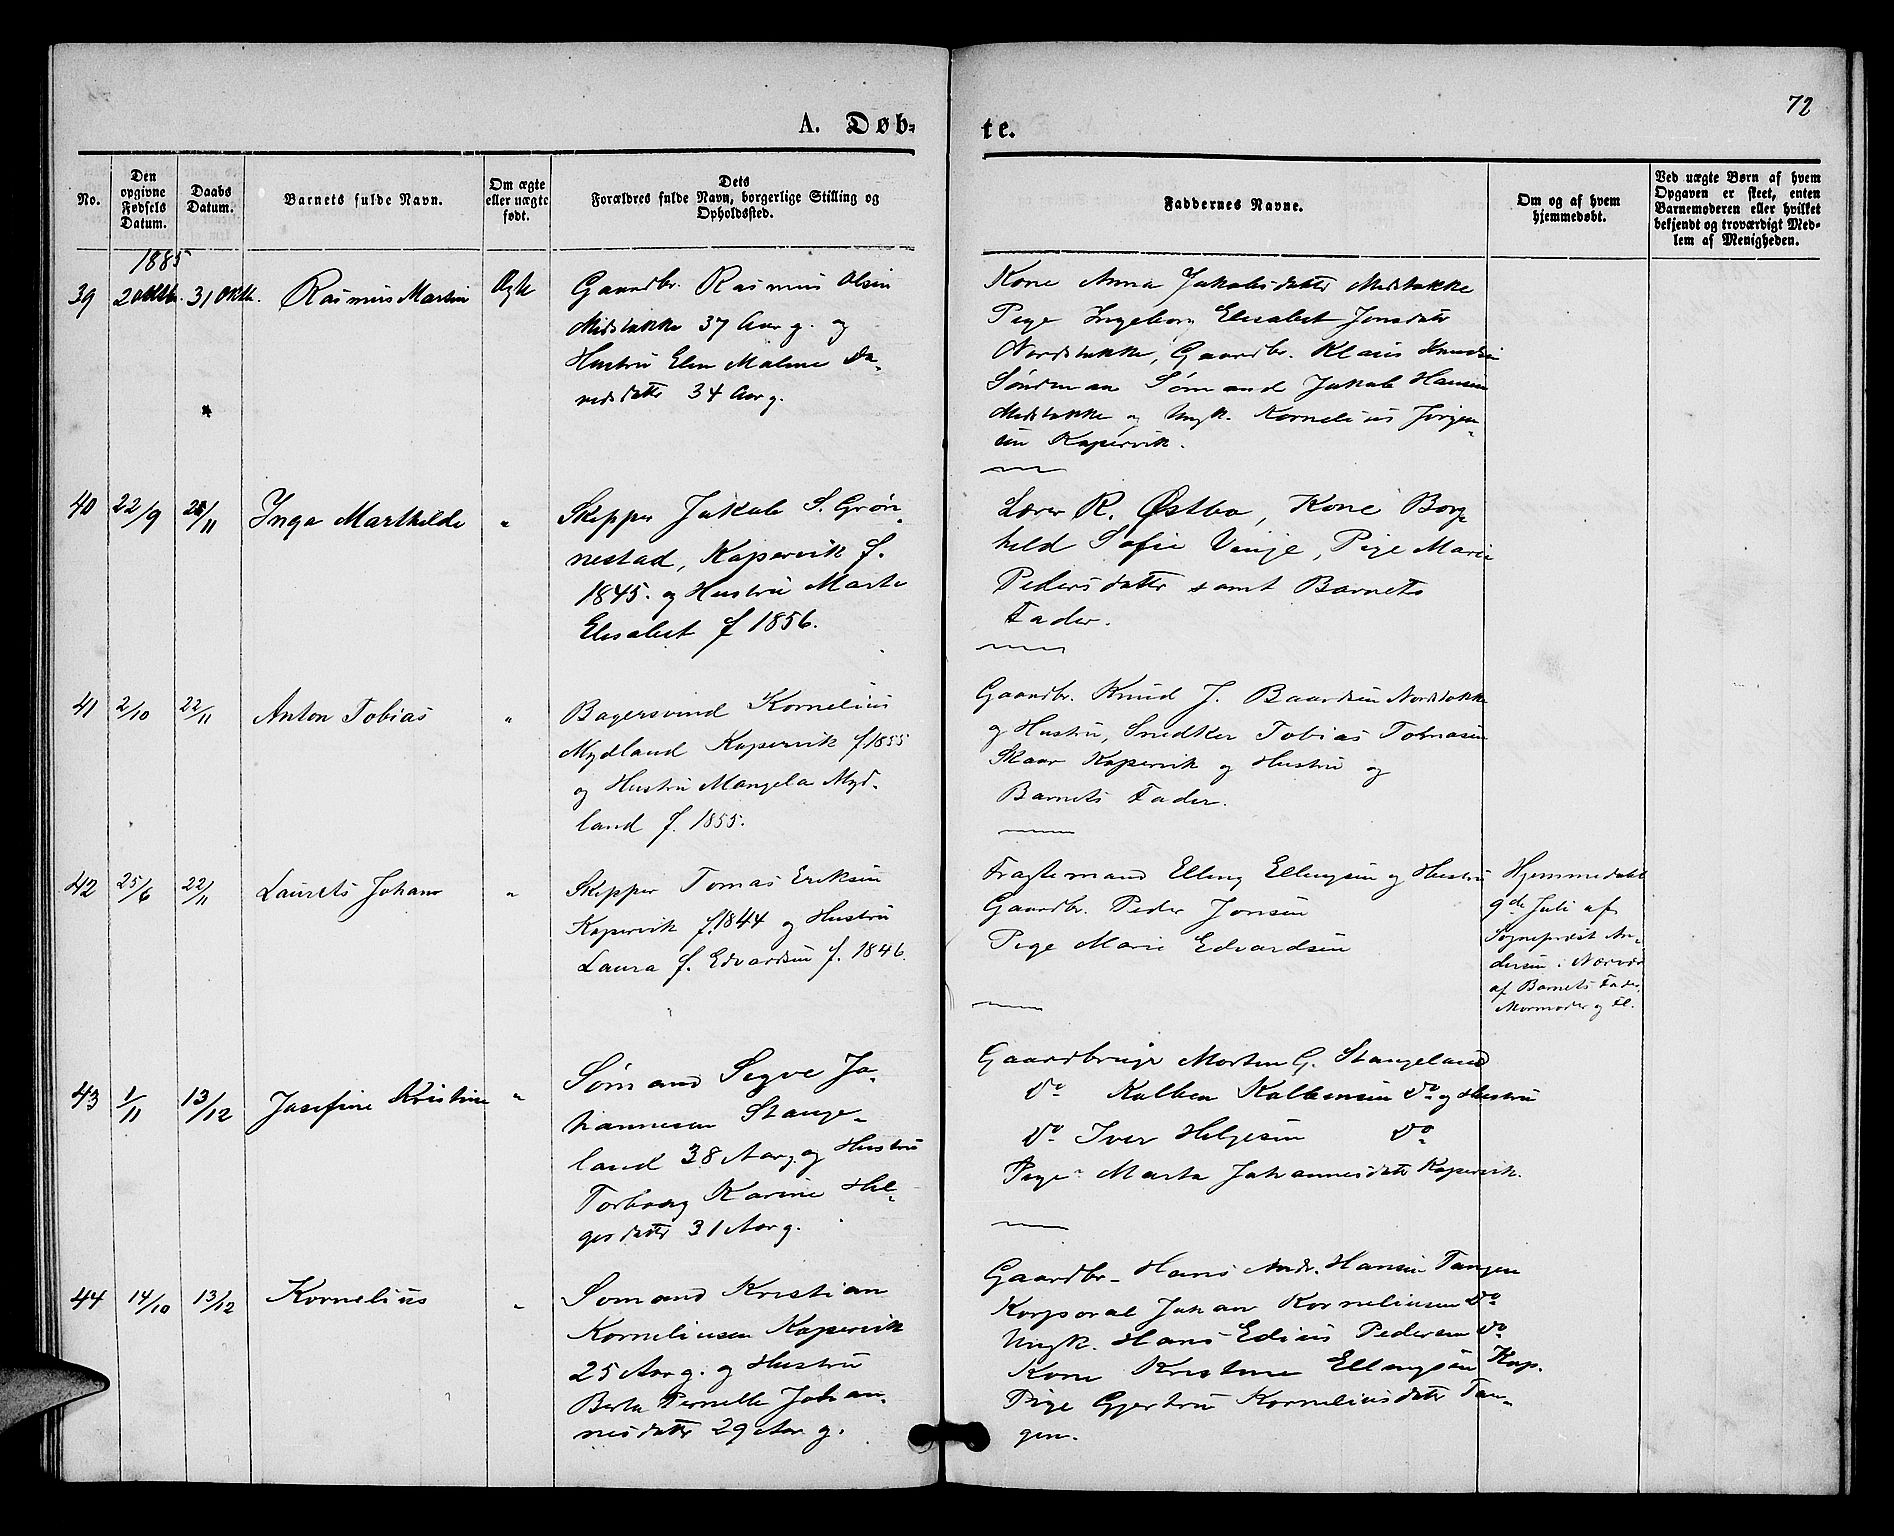 72
A. Døb-
te.
No.
Den
opgivne
Fødsels
Datum.
Daabs
Datum.
Barnets fulde Navn.
Om ægte
eller uægte
født.
Dets
Forældres fulde Navn, borgerlige Stilling og
Opholdssted.
Faddernes Navne.
Om og af hvem
hjemmedøbt.
Ved uægte Børn af hvem
Opgaven er skeet, enten
Barnemoderen eller hvilket
bekjendt og troværdigt Med-
lem af Menigheden.
1885
39 2 Oktbr. 31 Oktb. Rasmus Martin Ægte
Gaardbr. Rasmus Olsen
Midstokke 37 Aar g. og
Hustru Elen Malene Da-
vidsdatter 34 Aar g.
Kone Anna Jakobsdatter Midstokke
Pige Ingeborg Elisabet Jonsdatter
Nordstokke, Gaardbr. Klaus Knudsen
Sømand Jakob Hansen
Midstokke og Ungk. Kornelius Jørgen-
sen Kopervik.
40 22/9 /11 Inga Marthilde "
Skipper Jakob S. Grøn-
nestad, Kopervik f.
1845. og Hustru Marte
Elisabet f 1856.
Lærer R. Østbø, Kone Borg-
hild Sofie Vinje, Pige Marie
Pedersdatter samt Barnets
Fader.
41 2/10 22/11 Anton Tobias "
Bagersvend Kornelius
Mydland Kopervik f 1855
og Hustru Mangela Myd-
land f. 1855.
Gaardbr. Knud J. Baardsen Nordstokke
og Hustru, Snedker Tobias Tobiasen
Skaar Kopervik og Hustru og
Barnets Fader.
42 25/6 22/11 Laurits Johan "
Skipper Tomas Eriksen
Kopervik f. 1844 og Hustru
Laura f. Edvardsen f. 1846.
Fragtemand Elling Ellingsen og Hustru
Gaardbr. Peder Jonsen
Pige Marie Edvardsen
Hjemmedøbt
9de Juli af
Sogneprest An-
dersen i Nærvær
af Barnets Fader,
Mormoder og Fl.
43 1/11 13/12 Josefine Kristine "
Sømand Sigve Jo-
hannesen Stange-
land 38 Aar g. og Hustru
Torborg Karine Hel-
gesdatter 31 Aar g.
Gaardbruger Morten G. Stangeland
Do Kolben Kolbensen Do og Hustru
Do Iver Helgesen Do
Pige Marta Johannesdatter Kopervik.
44 14/10 13/12 Kornelius "
Sømand Kristian
Korneliusen Kopervik
25 Aar g. og Hustru
Berta Pernille Johan-
nesdatter 29 Aar g.
Gaardbr. Hans Andr. Hansen Tangen
Korporal Johan Korneliusen Do
Ungk. Hans Edius Pedersen Do
Kone Kristine Ellingsen Kop.
Pige Gjertru Korneliusdatter Tan-
gen.